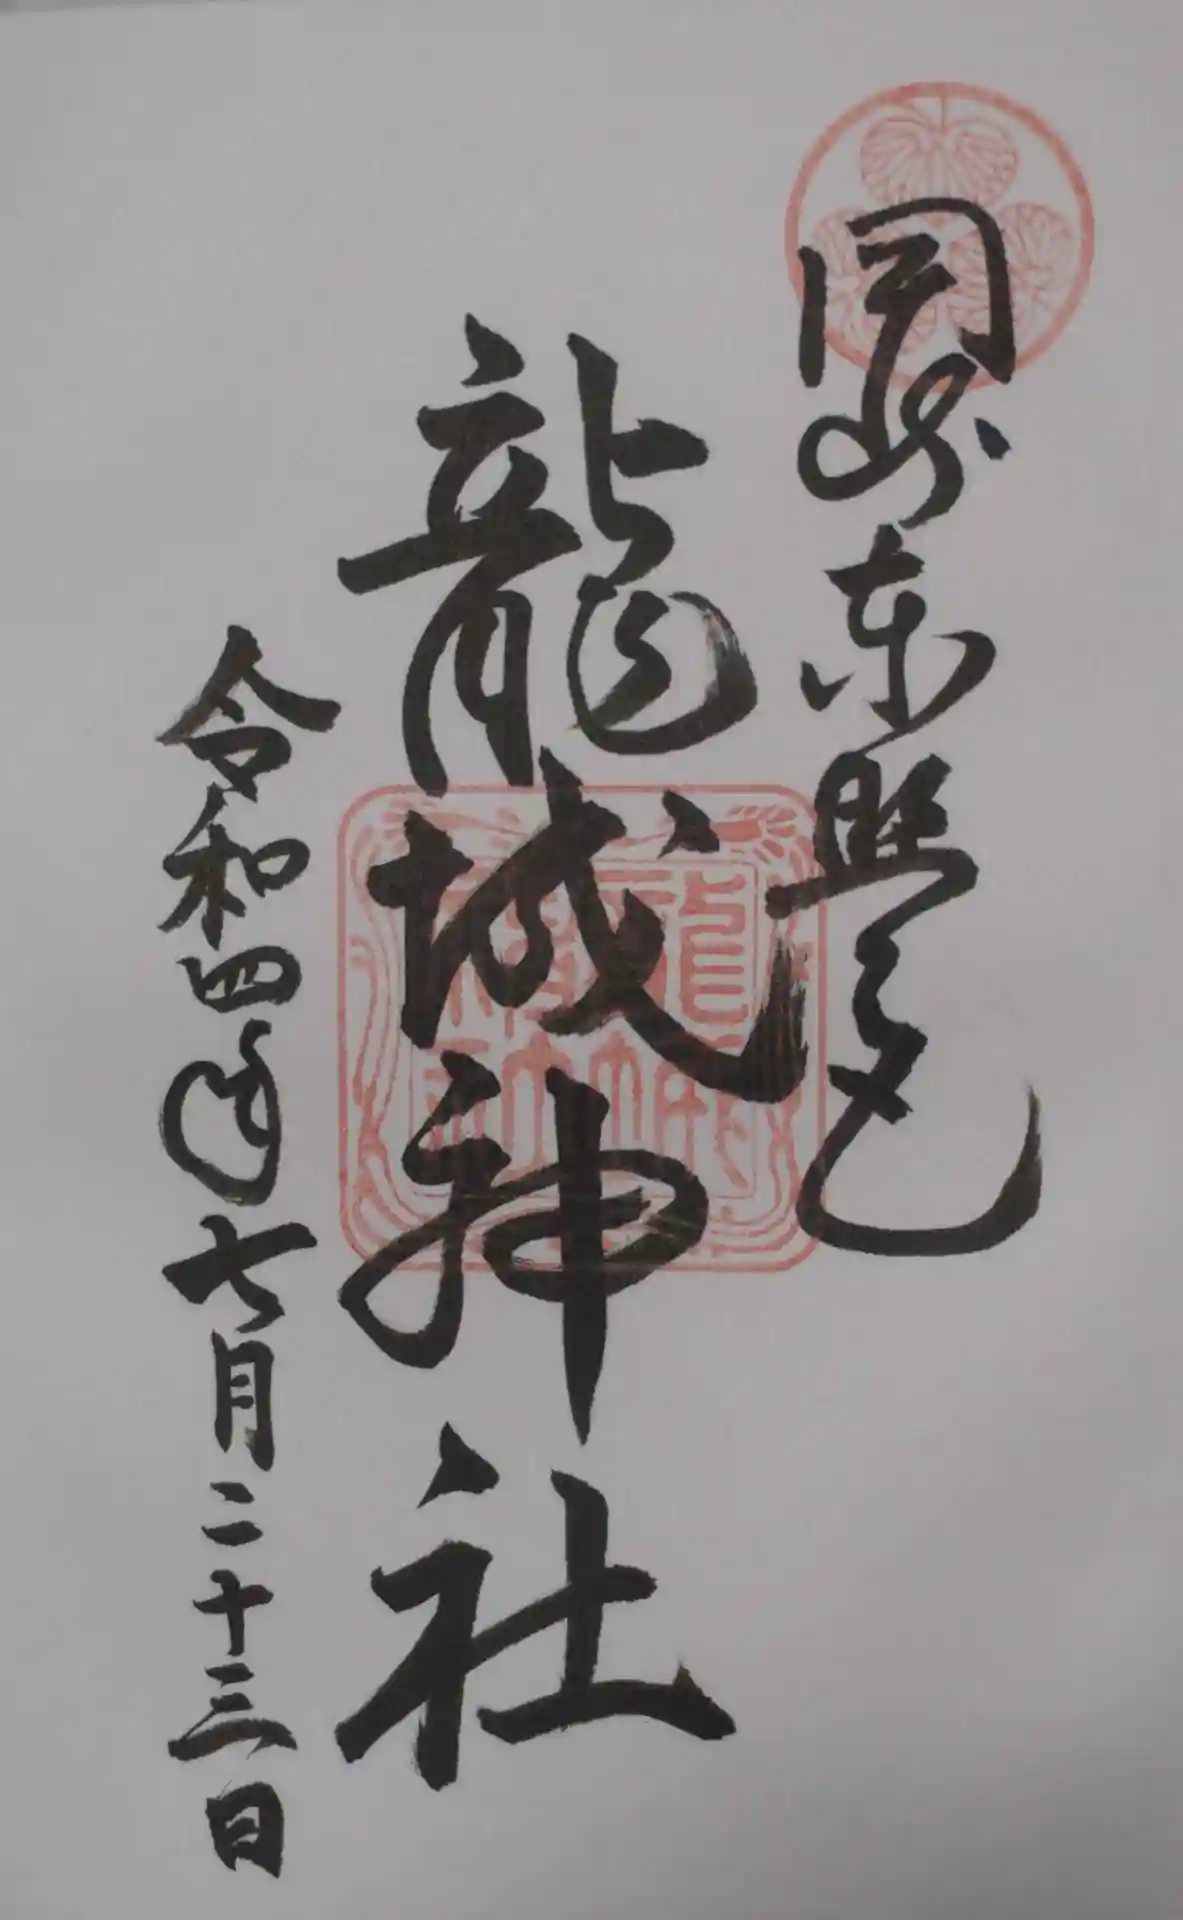 岡崎東照宮
龍城神社
令和四年七月二十三日
龍城神社